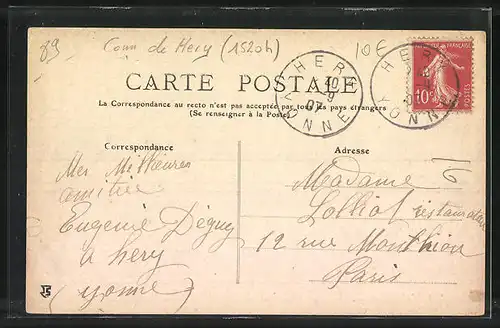 89 Com de Hery (1520h) 10€
CARTE POSTALE
La Correspondance au recto n'est pas acceptée par tous les pays étrangers
(Se renseigner à la Poste)
HERY
10 -9
07
YONNE
HERY
YONNE
POSTES
10c
Correspondance
Adresse
Mes Meilleures
amitiés
Eugénie Déguy
à hery
(Yonne)
Madame
Lolliot restaurateur
12 rue Monthion
Paris